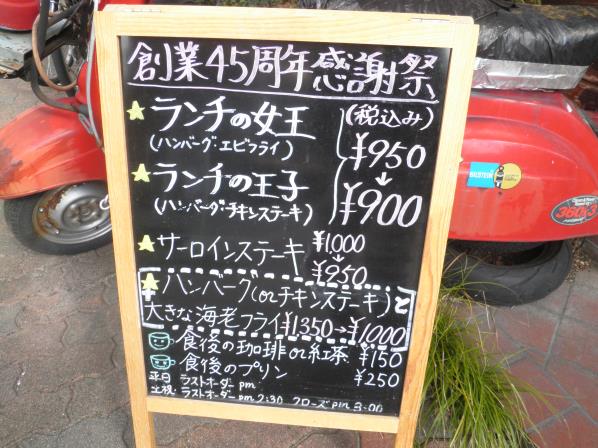 創業45周年感謝祭
★ランチの女王 (税込み)
(ハンバーグ・エビフライ) ¥950
↓
★ランチの王子 ¥900
(ハンバーグ・チキンステーキ)
★サーロインステーキ ¥1,000
↓
¥950
★ハンバーグ(orチキンステーキ)と
大きな海老フライ¥1,350→¥1,000
食後の珈琲or紅茶 ¥150
食後のプリン ¥250
平日 ラストオーダーpm
土祝・ラストオーダーpm2:30 クローズpm3:00
BILSTEIN
360